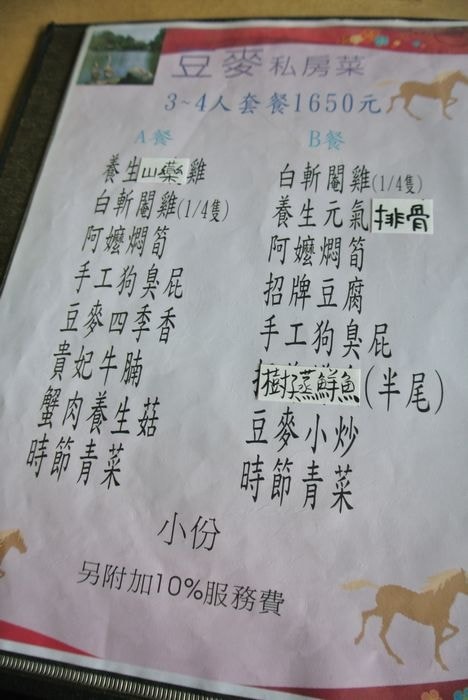 豆麥私房菜
3~4人套餐1650元
A餐
養生山藥雞
白斬閹雞(1/4隻)
阿嬤燜筍
手工狗臭屁
豆麥四季香
貴妃牛腩
蟹肉養生菇
時節青菜
B餐
白斬閹雞(1/4隻)
養生元氣排骨
阿嬤燜筍
招牌豆腐
手工狗臭屁
樹子蒸鮮魚(半尾)
豆麥小炒
時節青菜
小份
另附加10%服務費